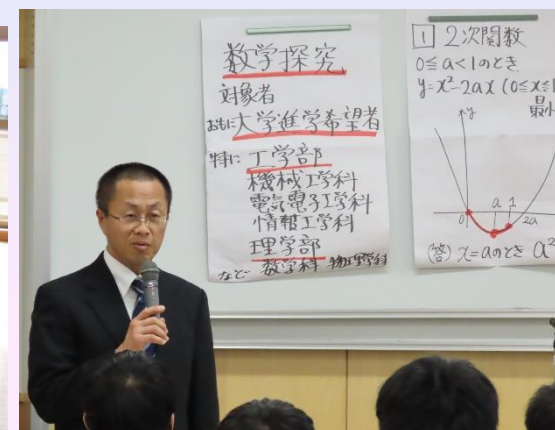 数学探究
対象者
おもに大学進学希望者
特に 工学部
機械工学科
電気電子工学科
情報工学科
理学部
など 数学科 物理学科
1 2次関数
0≦a<1のとき
y=x²-2ax (0≦x≦1
最小
y
0 a 1 2a
(答) x=aのとき a²